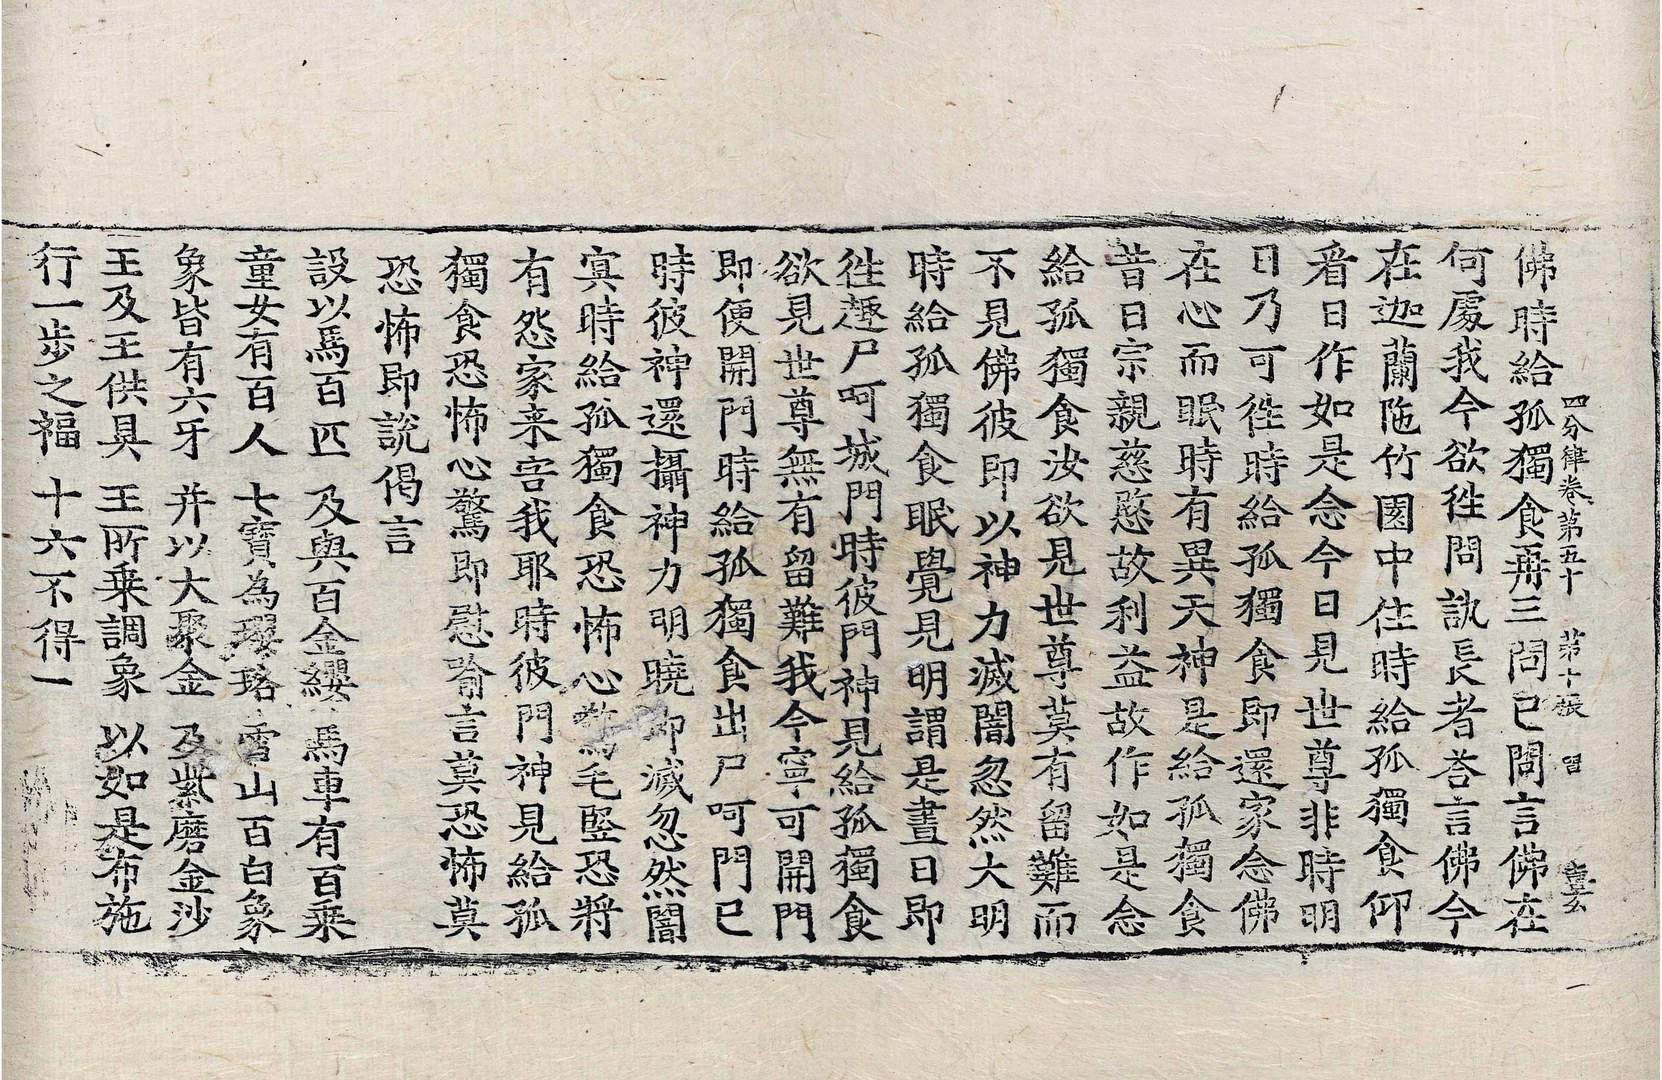 四分律卷第五十 第十張 習
佛時給孤獨食再三問已問言佛在
何處我今欲徃問訊長者荅言佛今
在迦蘭陁竹園中住時給孤獨食仰
看日作如是念今日見世尊非時明
日乃可徃時給孤獨食即還家念佛
在心而眠時有異天神是給孤獨食
昔日宗親慈愍故利益故作如是念
給孤獨食汝欲見世尊莫有留難而
不見佛彼即以神力滅闇忽然大明
時給孤獨食眠覺見明謂是晝日即
徃趣尸呵城門時彼門神見給孤獨食
欲見世尊無有留難我今寧可開門
即便開門時給孤獨食出尸呵門已
時彼神還攝神力明曉即滅忽然闇
冥時給孤獨食恐怖心驚毛竪恐將
有怨家来害我耶時彼門神見給孤
獨食恐怖心驚即慰喻言莫恐怖莫
恐怖即說偈言
設以馬百匹 及與百金纓 馬車有百乗
童女有百人 七寶為瓔珞 雪山百白象
象皆有六牙 并以大聚金 及紫磨金沙
王及王供具 王所乗調象 以如是布施
行一步之福 十六不得一